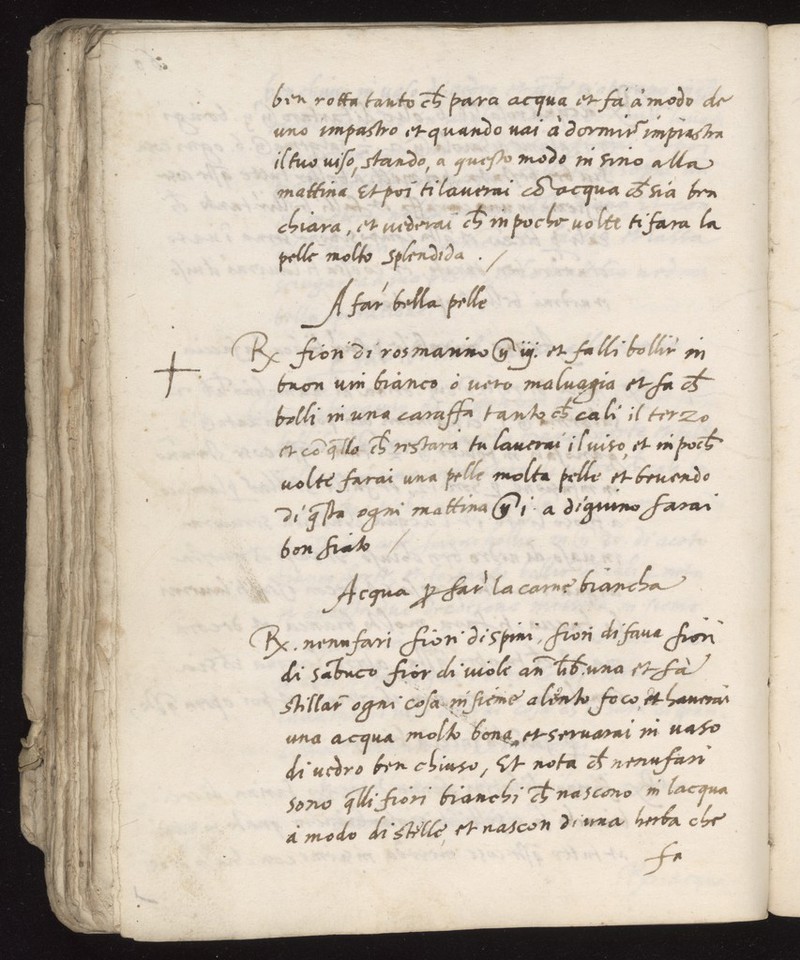 ben rotta tanto ch̃ para acqua et fa à modo de
uno impastro et quando vai à dormir̃ impiastra
il tuo viso, stando, a questo modo in sino alla
mattina Et poi ti laverai cõ acqua ch̃ sia ben
chiara, et vederai ch̃ in poche volte ti fara la
pelle molto splendida . /
A far̃ bella pelle
Rx fiori di rosmarino ij. et falli bollir̃ in
buon vin bianco ò vero malvagia et fa ch̃
bolli in una caraffa tanto, ch̃ cali il terzo
et cõ q̃llo ch̃ restara tu laverai il viso, et in poch̃
volte farai una pelle molta pelle et bevendo
di q̃sta ogni mattina i. a digiuno farai
bon fiato /
Acqua ꝑ far̃ la carne biancha
Rx. nenufari fiori di spini, fiori di fava fiori
di sãbuco fior di viole añ lib̃. una et fà
stillar̃ ogni cosa insieme a lento foco, et haverai
una acqua molto bona, et servarai in vaso
di vedro ben chiuso, Et nota ch̃ nenufari
sono q̃lli fiori bianchi ch̃ nascono in lacqua
à modo di stelle, et nascon di una herba che
fa